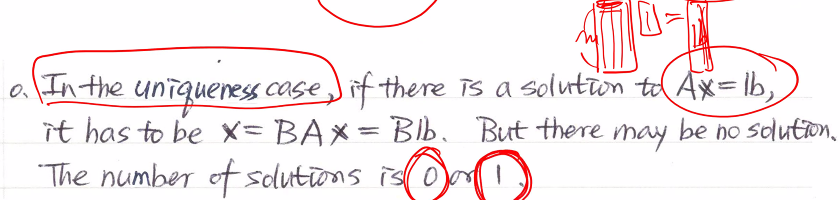 o. In the uniqueness case, if there is a solution to Ax=lb,
it has to be x= BAx = Blb. But there may be no solution.
The number of solutions is 0 or 1.